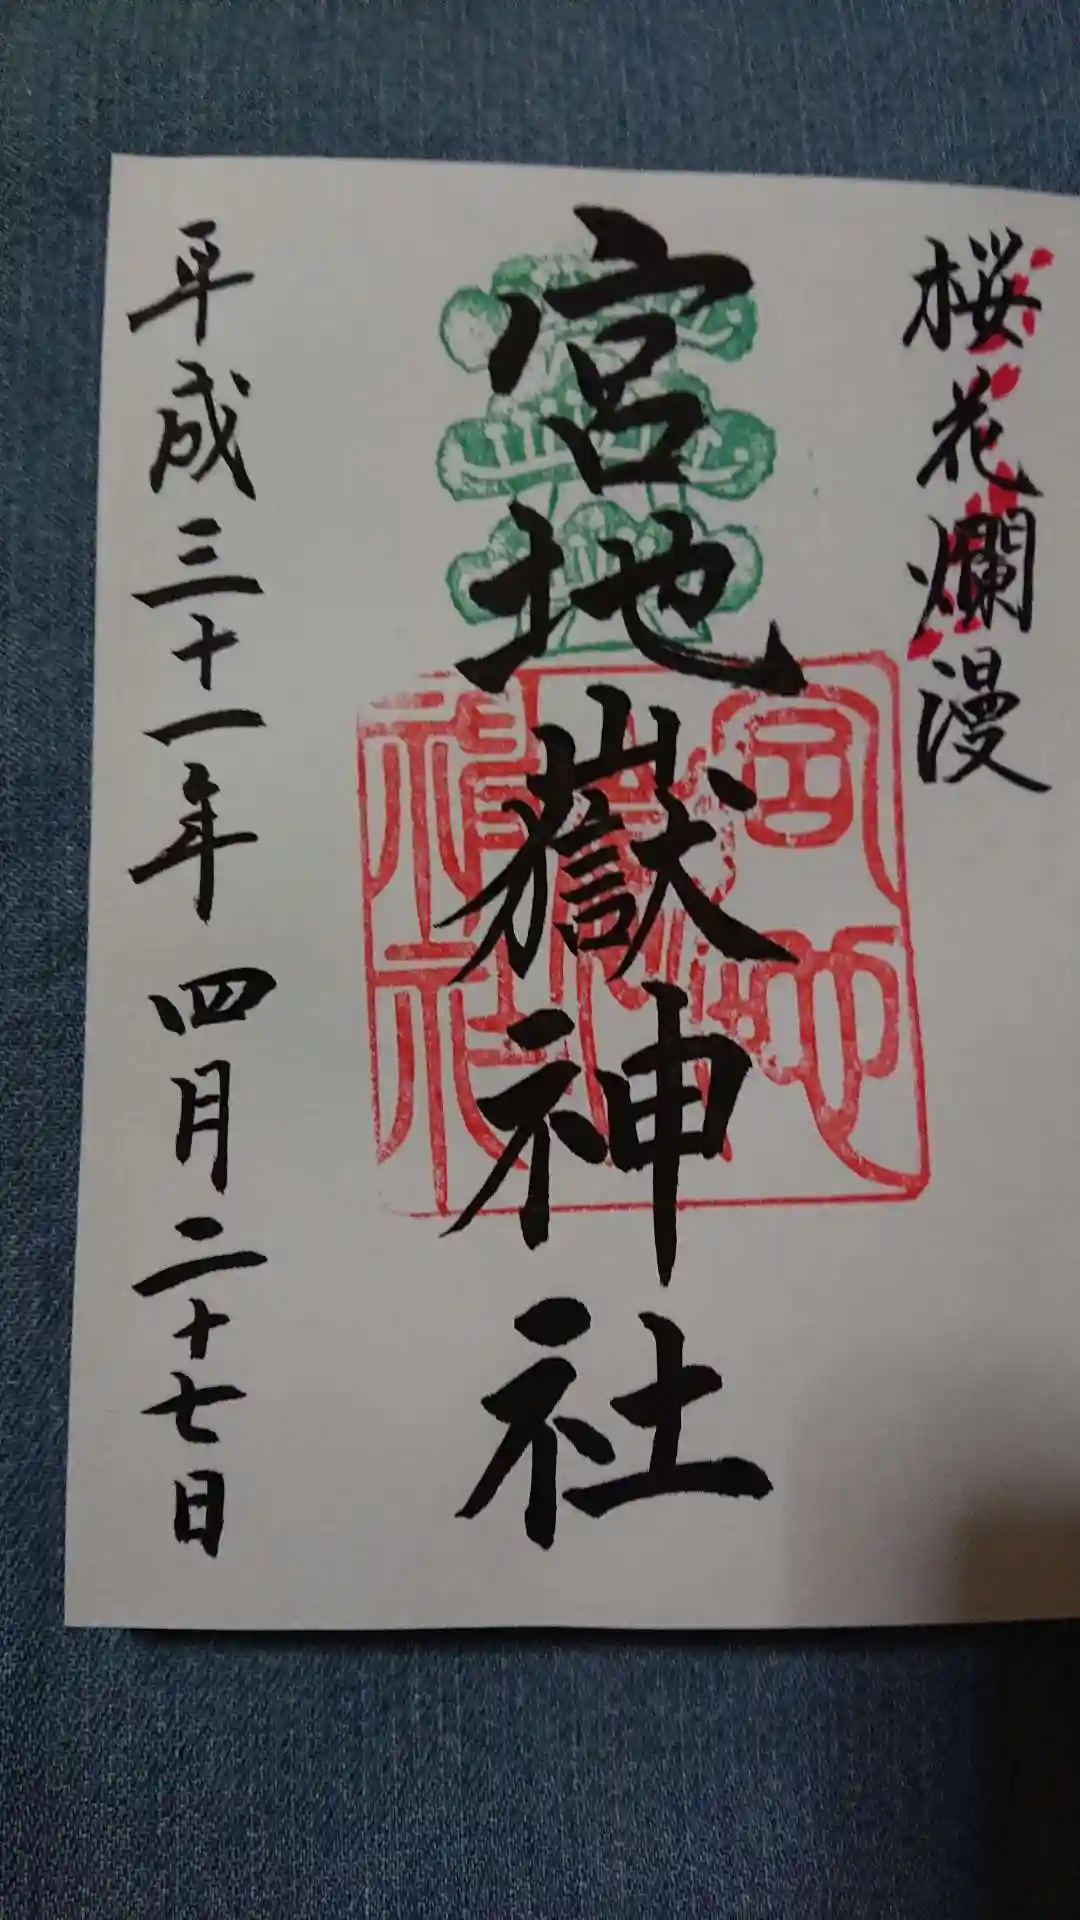 桜花爛漫
宮地嶽神社
平成三十一年四月二十七日